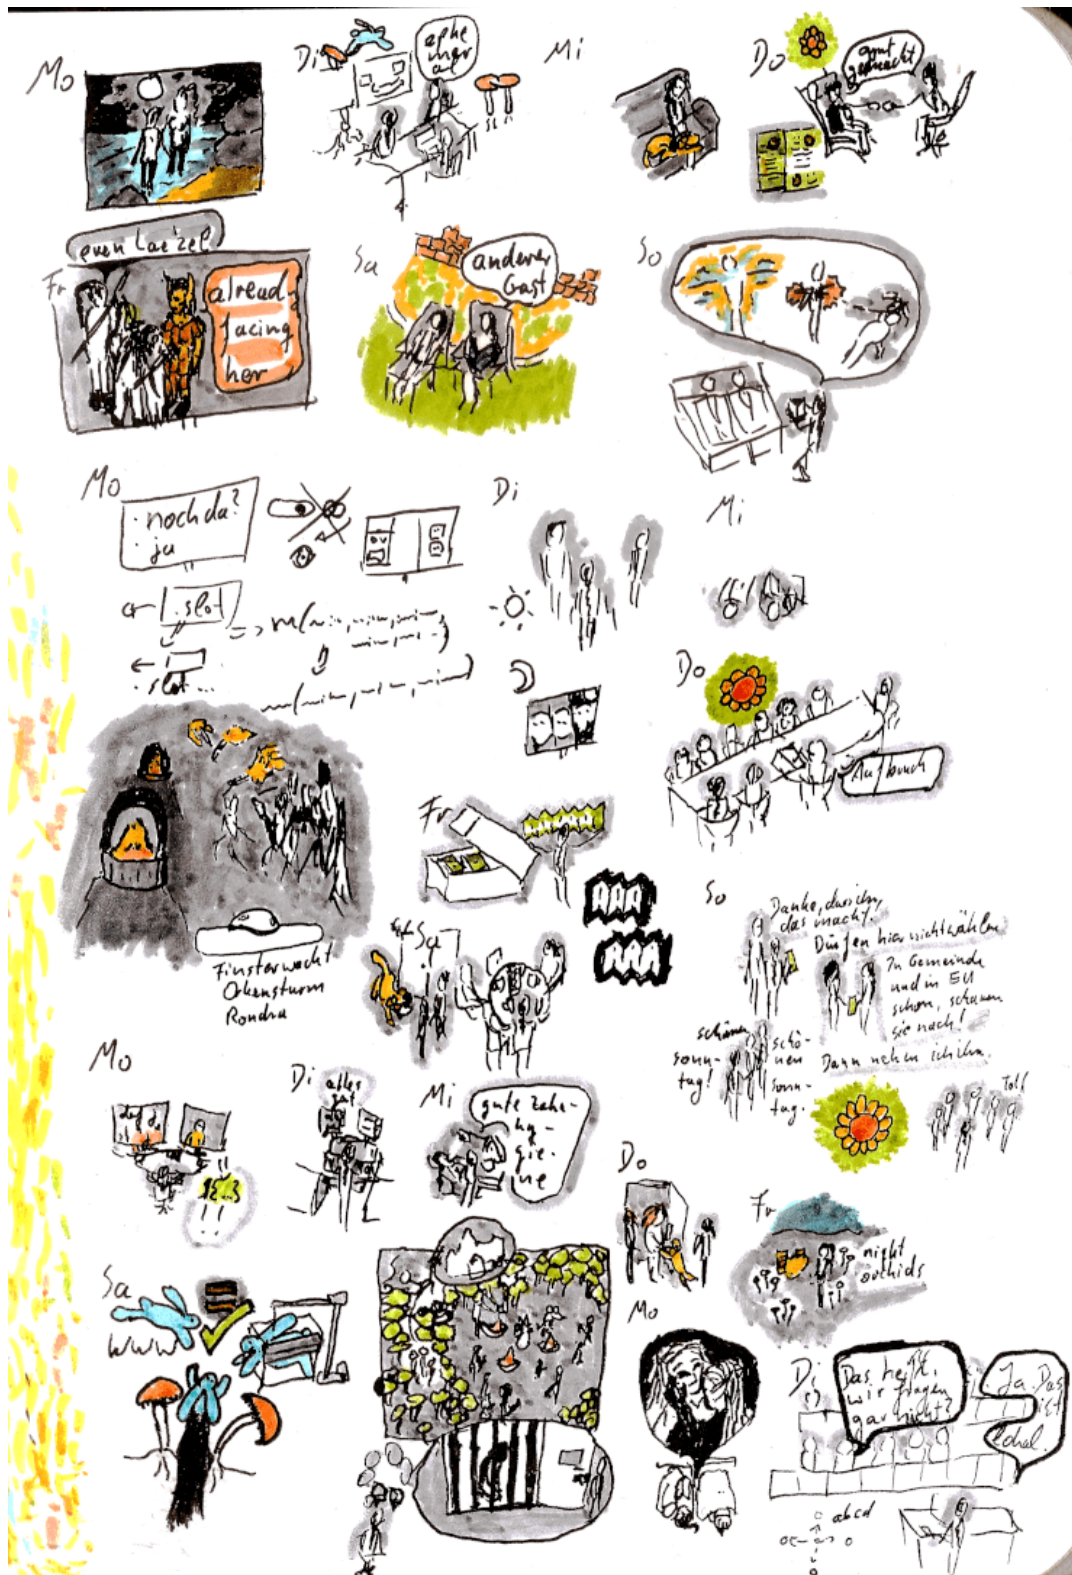 Mo
Di
ephe
mer
al
Mi
Do
gut
gemacht
even Lae'zel
Fr
already
facing
her
Sa
anderer
Gast
So
Mo
· noch da?
· ja
.slot
.slot ...
Di
Mi
Do
Aufbruch
Finsterwacht
Orkensturm
Rondra
Fr
Sa
So
Danke, dass ihr
das macht.
Dürfen hier nicht wählen
In Gemeinde
und in EU
schon, schauen
sie nach!
Dann nehm ich ihn.
schönen
sonn-
tag!
schö-
nen
sonn-
tag.
Toll
Mo
Di
alles
gut
Mi
gute Zahn-
hy-
gie-
ne
Do
Fr
nicht
orchids
Sa
www
Mo
Di
Das heißt,
wir fragen
gar nicht?
Ja. Das
ist
lokal.
abcd